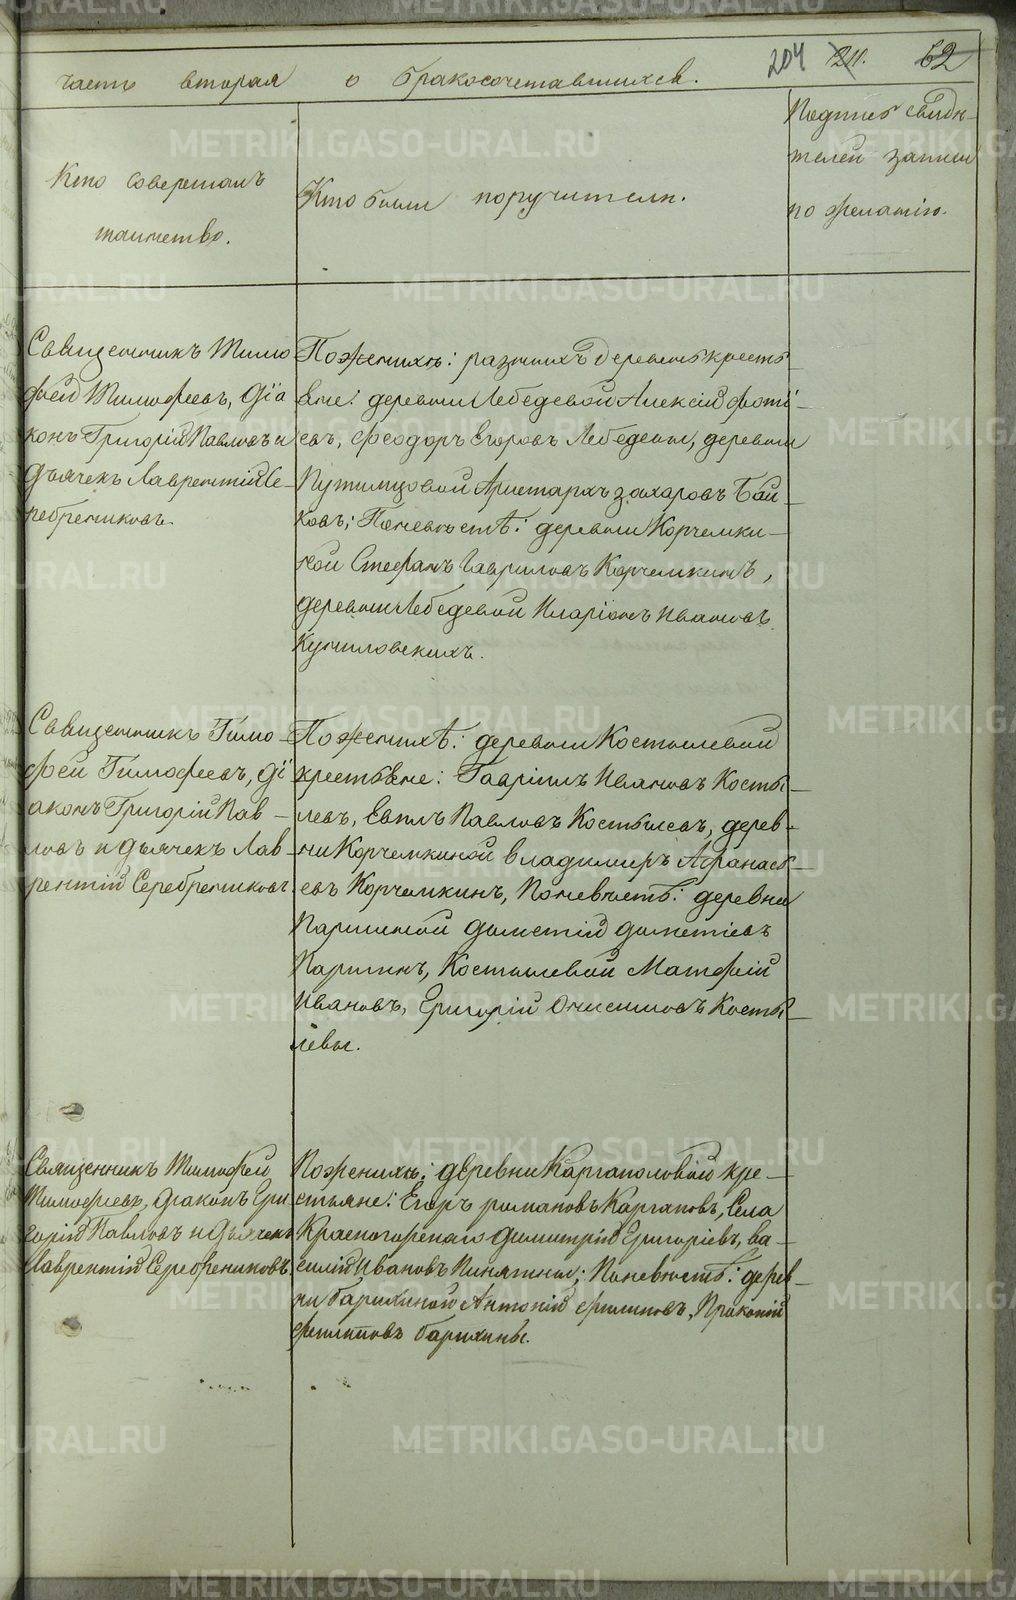 204 211. 62
часть вторая о бракосочетавшихся.
Кто совершалъ
таинство.
Кто были поручители.
Подпись свидѣ-
телей записи
по желанію.
Священникъ Тимо
фей Тимофеевъ, Діа
конъ Григорій Павловъ и
Дьячекъ Лаврентій Се-
ребрениковъ.
По женихѣ: разныхъ деревень кресть
яне: деревни Лебедевой Алексій Фоті-
евъ, Феодоръ Егоровъ Лебедевы, деревни
Путимцовой Аристархъ Захаровъ Бай-
ковъ; По невѣстѣ: деревни Корчемки-
ной Стефанъ Гавриловъ Корчемкинъ,
деревни Лебедевой Иларіонъ Ивановъ
Священникъ Тимо-
фей Тимофеевъ, Ді
аконъ Григорій Пав-
ловъ и Дьячекъ Лав-
рентій Серебрениковъ.
По женихѣ: деревни Костылевой
крестьяне: Гавріилъ Ивановъ Косты-
левъ, Евплъ Павловъ Костылевъ, дерев-
ни Корчемкиной Владимиръ Афанась-
евъ Корчемкинъ, По невѣстѣ: деревни
Паршиной Дометій Дометіевъ
Паршинъ, Костылевой Матфей
Ивановъ, Григорій Онисимовъ Косты-
левы.
Священникъ Тимофей
Тимофеевъ, Діаконъ Гри
горій Павловъ и Дьячекъ
Лаврентій Серебрениковъ.
По женихѣ: деревни Каргаполовой кре-
стьяне: Егоръ Романовъ Каргаповъ, Села
Красногорскаго Димитрій Григоріевъ, Ва-
силій Ивановъ Пинягины; По невѣстѣ: дерев-
ни Барихиной Антоній Филиповъ, Прокопій
Филиповъ Барихины.
METRIKI.GASO-URAL.RU